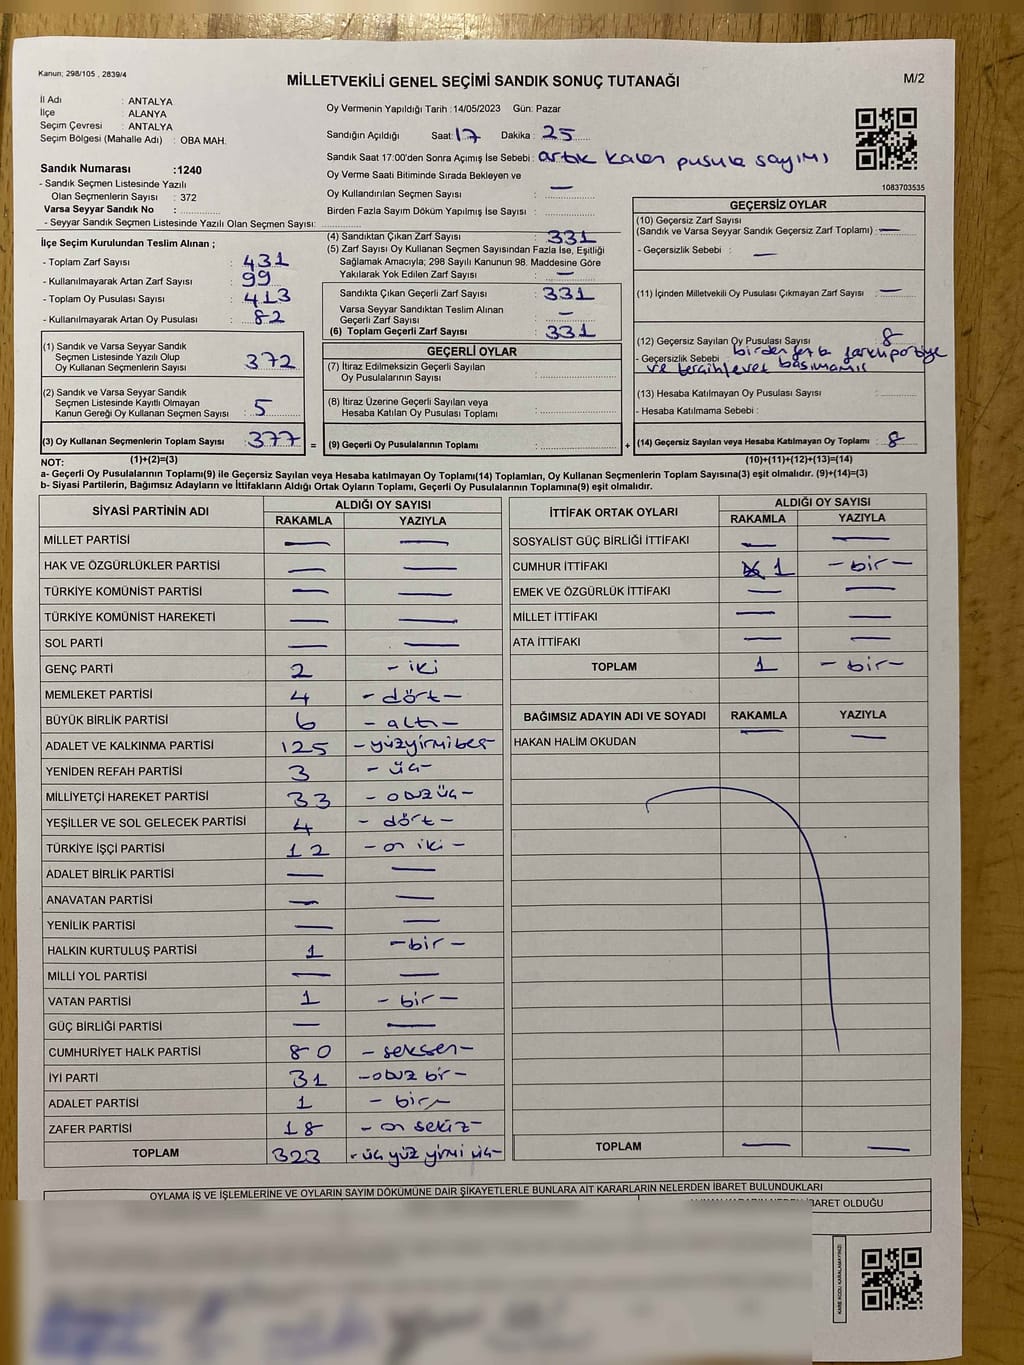 Kanun; 298/105 , 2839/4
MİLLETVEKİLİ GENEL SEÇİMİ SANDIK SONUÇ TUTANAĞI
M/2
İl Adı : ANTALYA
İlçe : ALANYA
Seçim Çevresi : ANTALYA
Seçim Bölgesi (Mahalle Adı) : OBA MAH.
Sandık Numarası :1240
- Sandık Seçmen Listesinde Yazılı
Olan Seçmenlerin Sayısı : 372
Varsa Seyyar Sandık No :
- Seyyar Sandık Seçmen Listesinde Yazılı Olan Seçmen Sayısı:
Oy Vermenin Yapıldığı Tarih :14/05/2023 Gün: Pazar
Sandığın Açıldığı Saat: 17 Dakika : 25
Sandık Saat 17:00'den Sonra Açımış İse Sebebi : artık kalan pusula sayımı
Oy Verme Saati Bitiminde Sırada Bekleyen ve
Oy Kullandırılan Seçmen Sayısı : —
Birden Fazla Sayım Döküm Yapılmış İse Sayısı :
1083703535
İlçe Seçim Kurulundan Teslim Alınan ;
- Toplam Zarf Sayısı : 431
- Kullanılmayarak Artan Zarf Sayısı : 99
- Toplam Oy Pusulası Sayısı : 413
- Kullanılmayarak Artan Oy Pusulası : 82
(1) Sandık ve Varsa Seyyar Sandık
Seçmen Listesinde Yazılı Olup
Oy Kullanan Seçmenlerin Sayısı : 372
(2) Sandık ve Varsa Seyyar Sandık
Seçmen Listesinde Kayıtlı Olmayan
Kanun Gereği Oy Kullanan Seçmen Sayısı : 5
(3) Oy Kullanan Seçmenlerin Toplam Sayısı : 377 =
(1)+(2)=(3)
(4) Sandıktan Çıkan Zarf Sayısı : 331
(5) Zarf Sayısı Oy Kullanan Seçmen Sayısından Fazla İse, Eşitliği
Sağlamak Amacıyla; 298 Sayılı Kanunun 98. Maddesine Göre
Yakılarak Yok Edilen Zarf Sayısı : —
Sandıkta Çıkan Geçerli Zarf Sayısı : 331
Varsa Seyyar Sandıktan Teslim Alınan
Geçerli Zarf Sayısı : —
(6) Toplam Geçerli Zarf Sayısı : 331
GEÇERLİ OYLAR
(7) İtiraz Edilmeksizin Geçerli Sayılan
Oy Pusulalarının Sayısı :
(8) İtiraz Üzerine Geçerli Sayılan veya
Hesaba Katılan Oy Pusulası Toplamı :
(9) Geçerli Oy Pusulalarının Toplamı : +
GEÇERSİZ OYLAR
(10) Geçersiz Zarf Sayısı
(Sandık ve Varsa Seyyar Sandık Geçersiz Zarf Toplamı) : —
- Geçersizlik Sebebi : —
(11) İçinden Milletvekili Oy Pusulası Çıkmayan Zarf Sayısı : —
(12) Geçersiz Sayılan Oy Pusulası Sayısı : 8
- Geçersizlik Sebebi : birden fazla farklı partiye
ve tercih/evet basılmamış
(13) Hesaba Katılmayan Oy Pusulası Sayısı :
- Hesaba Katılmama Sebebi :
(14) Geçersiz Sayılan veya Hesaba Katılmayan Oy Toplamı : 8
(10)+(11)+(12)+(13)=(14)
NOT:
a- Geçerli Oy Pusulalarının Toplamı(9) ile Geçersiz Sayılan veya Hesaba katılmayan Oy Toplamı(14) Toplamları, Oy Kullanan Seçmenlerin Toplam Sayısına(3) eşit olmalıdır. (9)+(14)=(3)
b- Siyasi Partilerin, Bağımsız Adayların ve İttifakların Aldığı Ortak Oyların Toplamı, Geçerli Oy Pusulalarının Toplamına(9) eşit olmalıdır.
SİYASİ PARTİNİN ADI ALDIĞI OY SAYISI
RAKAMLA YAZIYLA
MİLLET PARTİSİ — —
HAK VE ÖZGÜRLÜKLER PARTİSİ — —
TÜRKİYE KOMÜNİST PARTİSİ — —
TÜRKİYE KOMÜNİST HAREKETİ — —
SOL PARTİ — —
GENÇ PARTİ 2 - iki
MEMLEKET PARTİSİ 4 - dört -
BÜYÜK BİRLİK PARTİSİ 6 - altı -
ADALET VE KALKINMA PARTİSİ 125 - yüzyirmibeş
YENİDEN REFAH PARTİSİ 3 - üç -
MİLLİYETÇİ HAREKET PARTİSİ 33 - otuz üç -
YEŞİLLER VE SOL GELECEK PARTİSİ 4 - dört -
TÜRKİYE İŞÇİ PARTİSİ 12 - on iki -
ADALET BİRLİK PARTİSİ — —
ANAVATAN PARTİSİ — —
YENİLİK PARTİSİ — —
HALKIN KURTULUŞ PARTİSİ 1 - bir -
MİLLİ YOL PARTİSİ — —
VATAN PARTİSİ 1 - bir -
GÜÇ BİRLİĞİ PARTİSİ — —
CUMHURİYET HALK PARTİSİ 80 - seksen -
İYİ PARTİ 31 - otuz bir -
ADALET PARTİSİ 1 - bir -
ZAFER PARTİSİ 18 - on sekiz -
TOPLAM 323 - üç yüz yirmi üç -
İTTİFAK ORTAK OYLARI ALDIĞI OY SAYISI
RAKAMLA YAZIYLA
SOSYALİST GÜÇ BİRLİĞİ İTTİFAKI — —
CUMHUR İTTİFAKI 1 - bir -
EMEK VE ÖZGÜRLÜK İTTİFAKI — —
MİLLET İTTİFAKI — —
ATA İTTİFAKI — —
TOPLAM 1 - bir -
BAĞIMSIZ ADAYIN ADI VE SOYADI RAKAMLA YAZIYLA
HAKAN HALİM OKUDAN — —
TOPLAM — —
OYLAMA İŞ VE İŞLEMLERİNE VE OYLARIN SAYIM DÖKÜMÜNE DAİR ŞİKAYETLERLE BUNLARA AİT KARARLARIN NELERDEN İBARET BULUNDUKLARI
İBARET OLDUĞU
KARE KODU KARALAMAYINIZ!